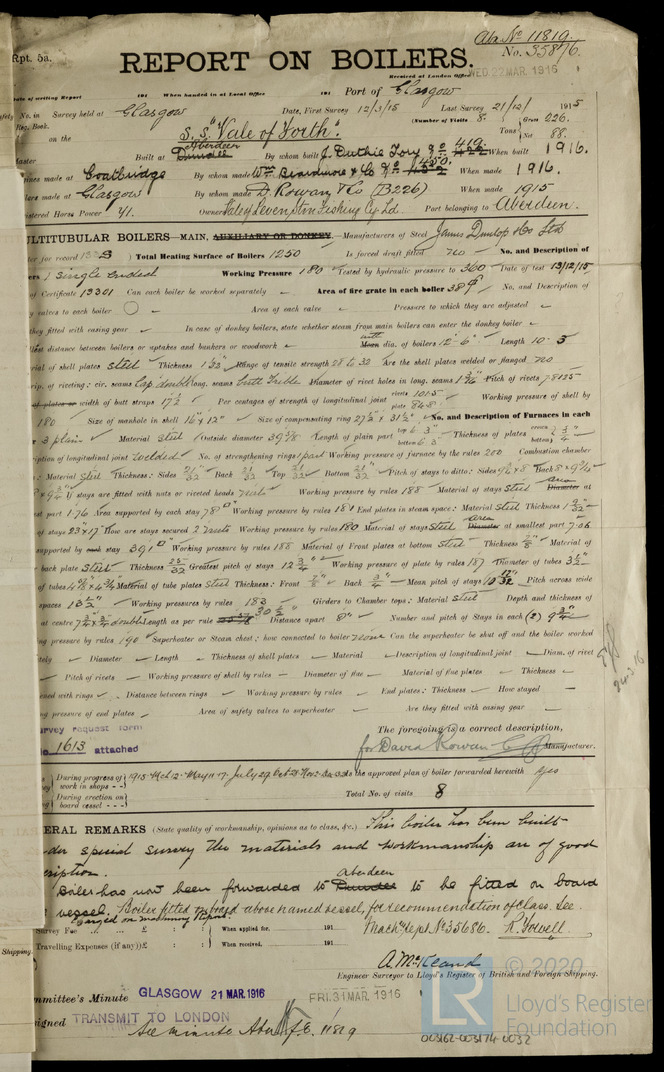 Abn. No 11819.
Rpt. 5a.
No. 35876.
REPORT ON BOILERS.
Received at London Office WED 22 MAR. 1916
Date of writing Report 191 When handed in at Local Office 191 Port of Glasgow
No. in Survey held at Glasgow Date, First Survey 12/3/15 Last Survey 21/12/ 1915
Reg. Book. (Number of Visits 8. Gross 226.
on the S.S. "Vale of Forth". Tons Net 88.
Master Built at Dundee Aberdeen By whom built J. Duthie Torry When built 1916.
Engines made at Coatbridge By whom made Wm Beardmore & Co When made 1916.
Boilers made at Glasgow By whom made D. Rowan & Co (B226) When made 1915
Registered Horse Power 41. Owners Port belonging to Aberdeen.
MULTITUBULAR BOILERS—MAIN, AUXILIARY OR DONKEY.—Manufacturers of Steel James Dunlop & Co Ltd
ter for record ) Total Heating Surface of Boilers 1250 Is forced draft fitted no No. and Description of
ers 1 Single ended Working Pressure 180 Tested by hydraulic pressure to 360 Date of test 13/12/15
of Certificate 13301 Can each boiler be worked separately Area of fire grate in each boiler 38 No. and Description of
y valves to each boiler Area of each valve Pressure to which they are adjusted
they fitted with easing gear In case of donkey boilers, state whether steam from main boilers can enter the donkey boiler
llest distance between boilers or uptakes and bunkers or woodwork Mean dia. of boilers 12'-6" Length 10-5
rial of shell plates steel Thickness Range of tensile strength 28 to 32 Are the shell plates welded or flanged no
rip. of riveting: cir. seams Lap double long. seams butt treble Diameter of rivet holes in long. seams 1 3/16 Pitch of rivets 7.8125
of plates or width of butt straps 17 1/2 Per centages of strength of longitudinal joint rivets 101.5 plate 84.8 Working pressure of shell by
180 Size of manhole in shell 16" x 12" Size of compensating ring 27 1/2 x 31 1/2 No. and Description of Furnaces in each
3 plain Material steel Outside diameter 39 5/8 Length of plain part top 6.3 bottom 6.3 Thickness of plates crown bottom 3/4
ription of longitudinal joint welded No. of strengthening rings 1 part Working pressure of furnace by the rules 200 Combustion chamber
: Material steel Thickness: Sides 21/32 Back 21/32 Top 21/32 Bottom 21/32 Pitch of stays to ditto: Sides 9 1/8 x 8 Back 8 x 9 1/2
If stays are fitted with nuts or riveted heads nuts Working pressure by rules 188 Material of stays steel Diameter area at
st part 1.76 Area supported by each stay 78 Working pressure by rules 181 End plates in steam space: Material steel Thickness 1 9/32
of stays 23 x 17 How are stays secured 2 nuts Working pressure by rules 180 Material of stays steel Diameter area at smallest part 7.06
supported by each stay 391 Working pressure by rules 188 Material of Front plates at bottom steel Thickness 7/8 Material of
back plate steel Thickness 25/32 Greatest pitch of stays 12 3/4 Working pressure of plate by rules 187 Diameter of tubes 3 1/2
of tubes 4 7/8 x 4 3/4 Material of tube plates steel Thickness: Front 7/8 Back 3/4 Mean pitch of stays Pitch across wide
spaces 13 1/2" Working pressures by rules 183 Girders to Chamber tops: Material steel Depth and thickness of
at centre 7 1/4 x 3/4 double Length as per rule 30 1/2 Distance apart 8" Number and pitch of Stays in each (2) 9 3/4
ng pressure by rules 190 Superheater or Steam chest: how connected to boiler none Can the superheater be shut off and the boiler worked
tely Diameter Length Thickness of shell plates Material Description of longitudinal joint Diam. of rivet
Pitch of rivets Working pressure of shell by rules Diameter of flue Material of flue plates Thickness
ened with rings Distance between rings Working pressure by rules End plates: Thickness How stayed
ng pressure of end plates Area of safety valves to superheater Are they fitted with easing gear
urvey request form
o. 1613 attached
The foregoing is a correct description,
for David Rowan & Co Manufacturer.
During progress of work in shops - - 1915 Mch 12 May 11 17 July 29 Oct Nov Dec Is the approved plan of boiler forwarded herewith yes
During erection on board vessel - - - Total No. of visits 8
ERAL REMARKS (State quality of workmanship, opinions as to class, &c.) This boiler has been built
nder special survey the materials and workmanship are of good
scription.
Boiler has now been forwarded to Dundee Aberdeen to be fitted on board
vessel. Boiler fitted on board above named vessel, for recommendation of class see
charged on machinery Report Machy Rept No 35686.
Survey Fee £ : : When applied for, 191
Travelling Expenses (if any) £ : : When received, 191
A. McKeand
Engineer Surveyor to Lloyd's Register of British and Foreign Shipping.
Shipping.
mmittee's Minute GLASGOW 21 MAR. 1916 FRI. 31 MAR. 1916
signed TRANSMIT TO LONDON
See minute Abn. F.E. 11819
© 2020
LR
Lloyd's Register
Foundation
003162-003174-0032